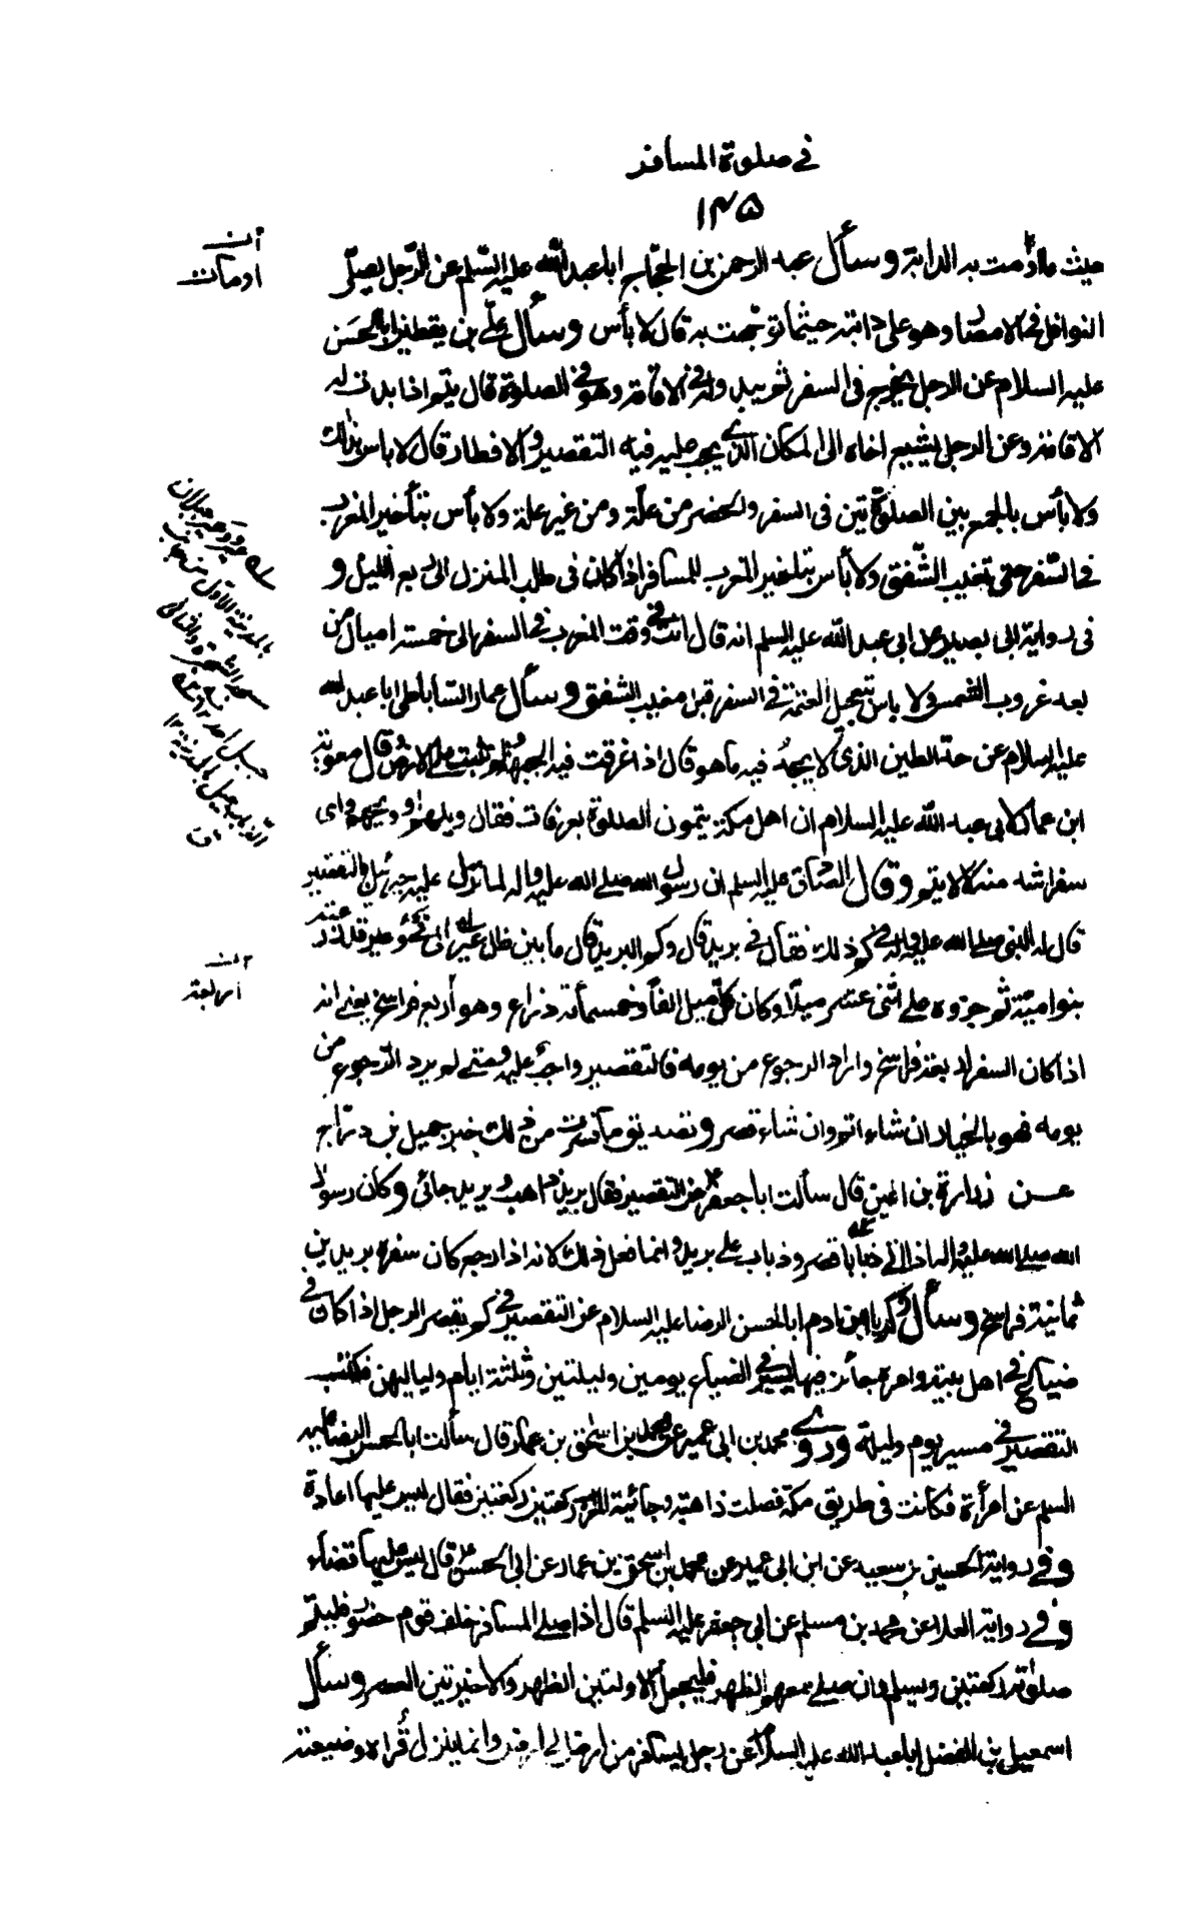 في صلوة المسافر
١٣٥
حيث ما توجهت به الدابة وسأل عبد الرحمن بن الحجاج ابا عبد الله عليه السلم عن الرجل يصلي
النوافل في الامصار وهو على دابته حيثما توجهت به قال لا بأس وسأل علي بن يقطين ابا الحسن
عليه السلام عن الرجل يخرج في السفر ثم يبدو له في الاقامة وهو في الصلوة قال يتم اذا بدت له
الاقامة وعن الرجل يشيع اخاه الى المكان الذي يجب عليه فيه التقصير والافطار قال لا باس بذلك
ولا بأس بالجمع بين الصلوتين في السفر والحضر من علة ومن غير علة ولا بأس بتأخير المغرب
في السفر حتى تغيب الشفق ولا بأس بتاخير المغرب للمسافر اذا كان في طلب المنزل الى ربع الليل و
في رواية ابي بصير عن ابي عبد الله عليه السلم انه قال انت في وقت المغرب في السفر الى خمسة اميال من
بعد غروب الشمس ولا باس بتعجيل العتمة في السفر قبل مغيب الشفق وسأل عمار الساباطي ابا عبد الله
عليه السلام عن حد الطين الذي لا يسجد فيه ما هو قال اذا غرقت فيه الجبهة ولم تثبت على الارض قال معوية
ابن عمار لابي عبد الله عليه السلام ان اهل مكة يتمون الصلوة بعرفات فقال ويلهم او ويحهم واي
سفر اشد منه لا لا يتم وقال الصادق عليه السلم ان رسول الله صلى الله عليه واله لما نزل عليه جبرئيل بالتقصير
قال له النبي صلى الله عليه واله في كم ذلك فقال في بريد قال وكم البريد قال ما بين ظل عير الى فئ وعير فذرعته
بنو امية ثم جزوه على اثني عشر ميلا وكان كل ميل الفا وخمسمأة ذراع وهو أربع فراسخ يعني انه
اذا كان السفر اربعة فراسخ واراد الرجوع من يومه فالتقصير واجب عليه ومتى لم يرد الرجوع من
يومه فهو بالخيار ان شاء اتم وان شاء قصر وتصديق ما فسرت من ذلك خبر جميل بن دراج
عن زرارة بن اعين قال سألت ابا جعفر ع عن التقصير فقال بريد ذاهب وبريد جائي وكان رسول
الله صلى الله عليه واله اذا اتى ذبابا قصر وذباب على بريد وانما فعل ذلك لانه اذا رجع كان سفره بريدين
ثمانية فراسخ وسأل زكريا بن ادم ابا الحسن الرضا عليه السلام عن التقصير في كم يقصر الرجل اذا كان في
ضياع اهل بيته وامره جائز فيها يسير في الضياع يومين وليلتين وثلثة ايام ولياليهن فكتب
التقصير في مسير يوم وليلة وروى محمد بن ابي عمير عن محمد بن اسحق بن عمار قال سألت ابا الحسن الرضا عليه
السلم عن امرأة كانت في طريق مكة فصلت ذاهبة وجائية المغرب ركعتين ركعتين فقال ليس عليها اعادة
وفي رواية الحسين بن سعيد عن ابن ابي عمير عن محمد بن اسحق بن عمار عن ابي الحسن ع قال ليس عليها قضاء
وفي رواية العلا عن محمد بن مسلم عن ابي جعفر عليه السلم قال اذا صلى المسافر خلف قوم حضور فليتم
صلوته ركعتين ويسلم وان صلى معهم الظهر فليجعل الاولتين الظهر والاخيرتين العصر وسأل
اسمعيل بن الفضل ابا عبد الله عليه السلام عن رجل يسافر من ارض الى ارض وانما ينزل قراه وضيعته